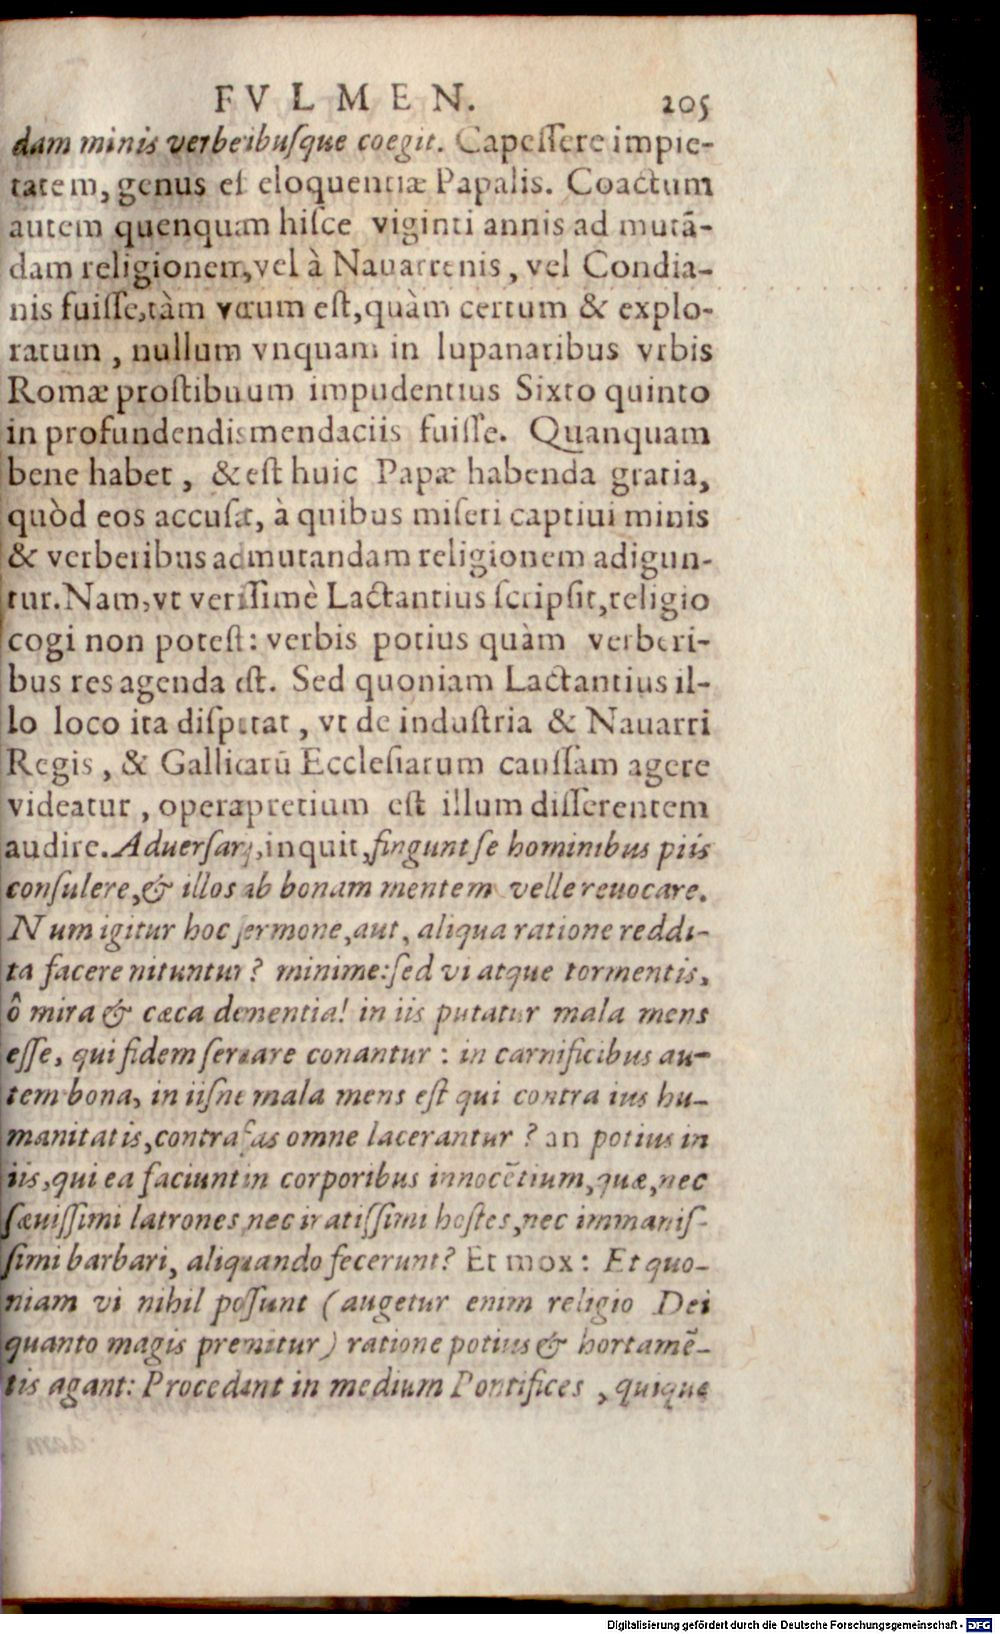 FVLMEN. 205
dam minis verberibuſque coegit. Capeſſere impie-
tatem, genus eſt eloquentiæ Papalis. Coactum
autem quenquam hiſce viginti annis ad mutā-
dam religionem, vel à Nauarrenis, vel Condia-
nis fuiſſe, tàm verum eſt, quàm certum & explo-
ratum, nullum vnquam in lupanaribus vrbis
Romæ proſtibuum impudentius Sixto quinto
in profundendis mendaciis fuiſſe. Quanquam
bene habet, & eſt huic Papæ habenda gratia,
quòd eos accuſat, à quibus miſeri captiui minis
& verberibus ad mutandam religionem adigun-
tur. Nam, vt veriſſimè Lactantius ſcripſit, religio
cogi non poteſt: verbis potius quàm verberi-
bus res agenda eſt. Sed quoniam Lactantius il-
lo loco ita diſputat, vt de induſtria & Nauarri
Regis, & Gallicarū Eccleſiarum cauſſam agere
videatur, operapretium eſt illum diſſerentem
audire. Aduerſarij, inquit, fingunt ſe hominibus piis
conſulere, & illos ab bonam mentem velle reuocare.
Num igitur hoc ſermone, aut, aliqua ratione reddi-
ta facere nituntur? minime: ſed vi atque tormentis,
ô mira & cæca dementia! in iis putatur mala mens
eſſe, qui fidem ſeruare conantur: in carnificibus au-
tem bona, in iiſne mala mens eſt qui contra ius hu-
manitatis, contra fas omne lacerantur? an potius in
iis, qui ea faciunt in corporibus innocētium, quæ, nec
ſæuiſſimi latrones nec iratiſſimi hoſtes, nec immaniſ-
ſimi barbari, aliquando fecerunt? Et mox: Et quo-
niam vi nihil poſſunt (augetur enim religio Dei
quanto magis premitur) ratione potius & hortamē-
tis agant: Procedant in medium Pontifices, quique
Digitalisierung gefördert durch die Deutsche Forschungsgemeinschaft - DFG